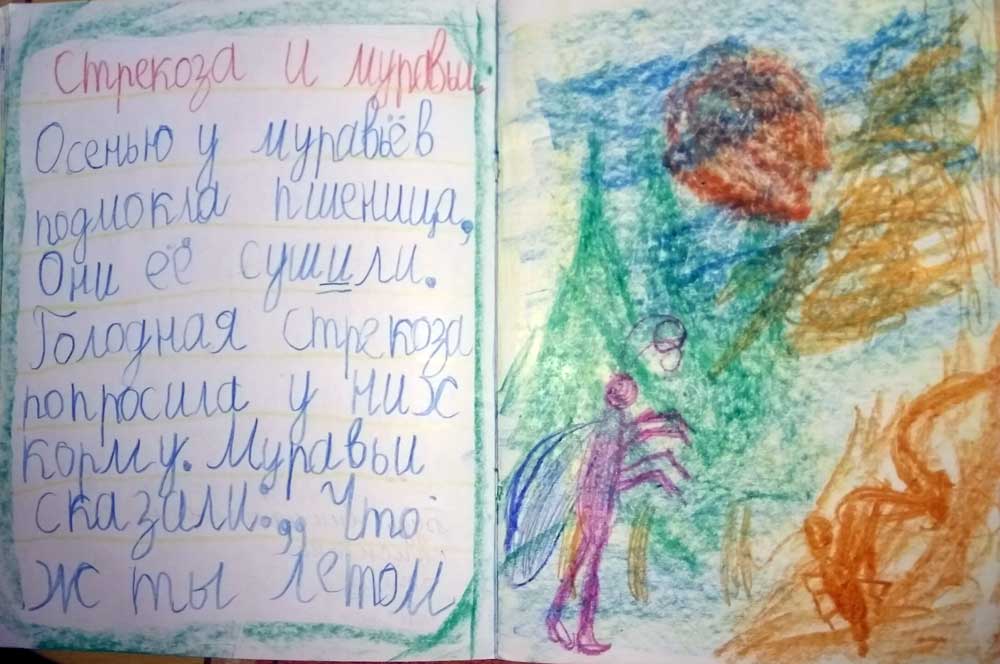 Стрекоза и муравьи.
Осенью у муравьёв
подмокла пшеница,
Они её сушили.
Голодная стрекоза
попросила у них
корму. Муравьи
сказали: „Что
ж ты летом